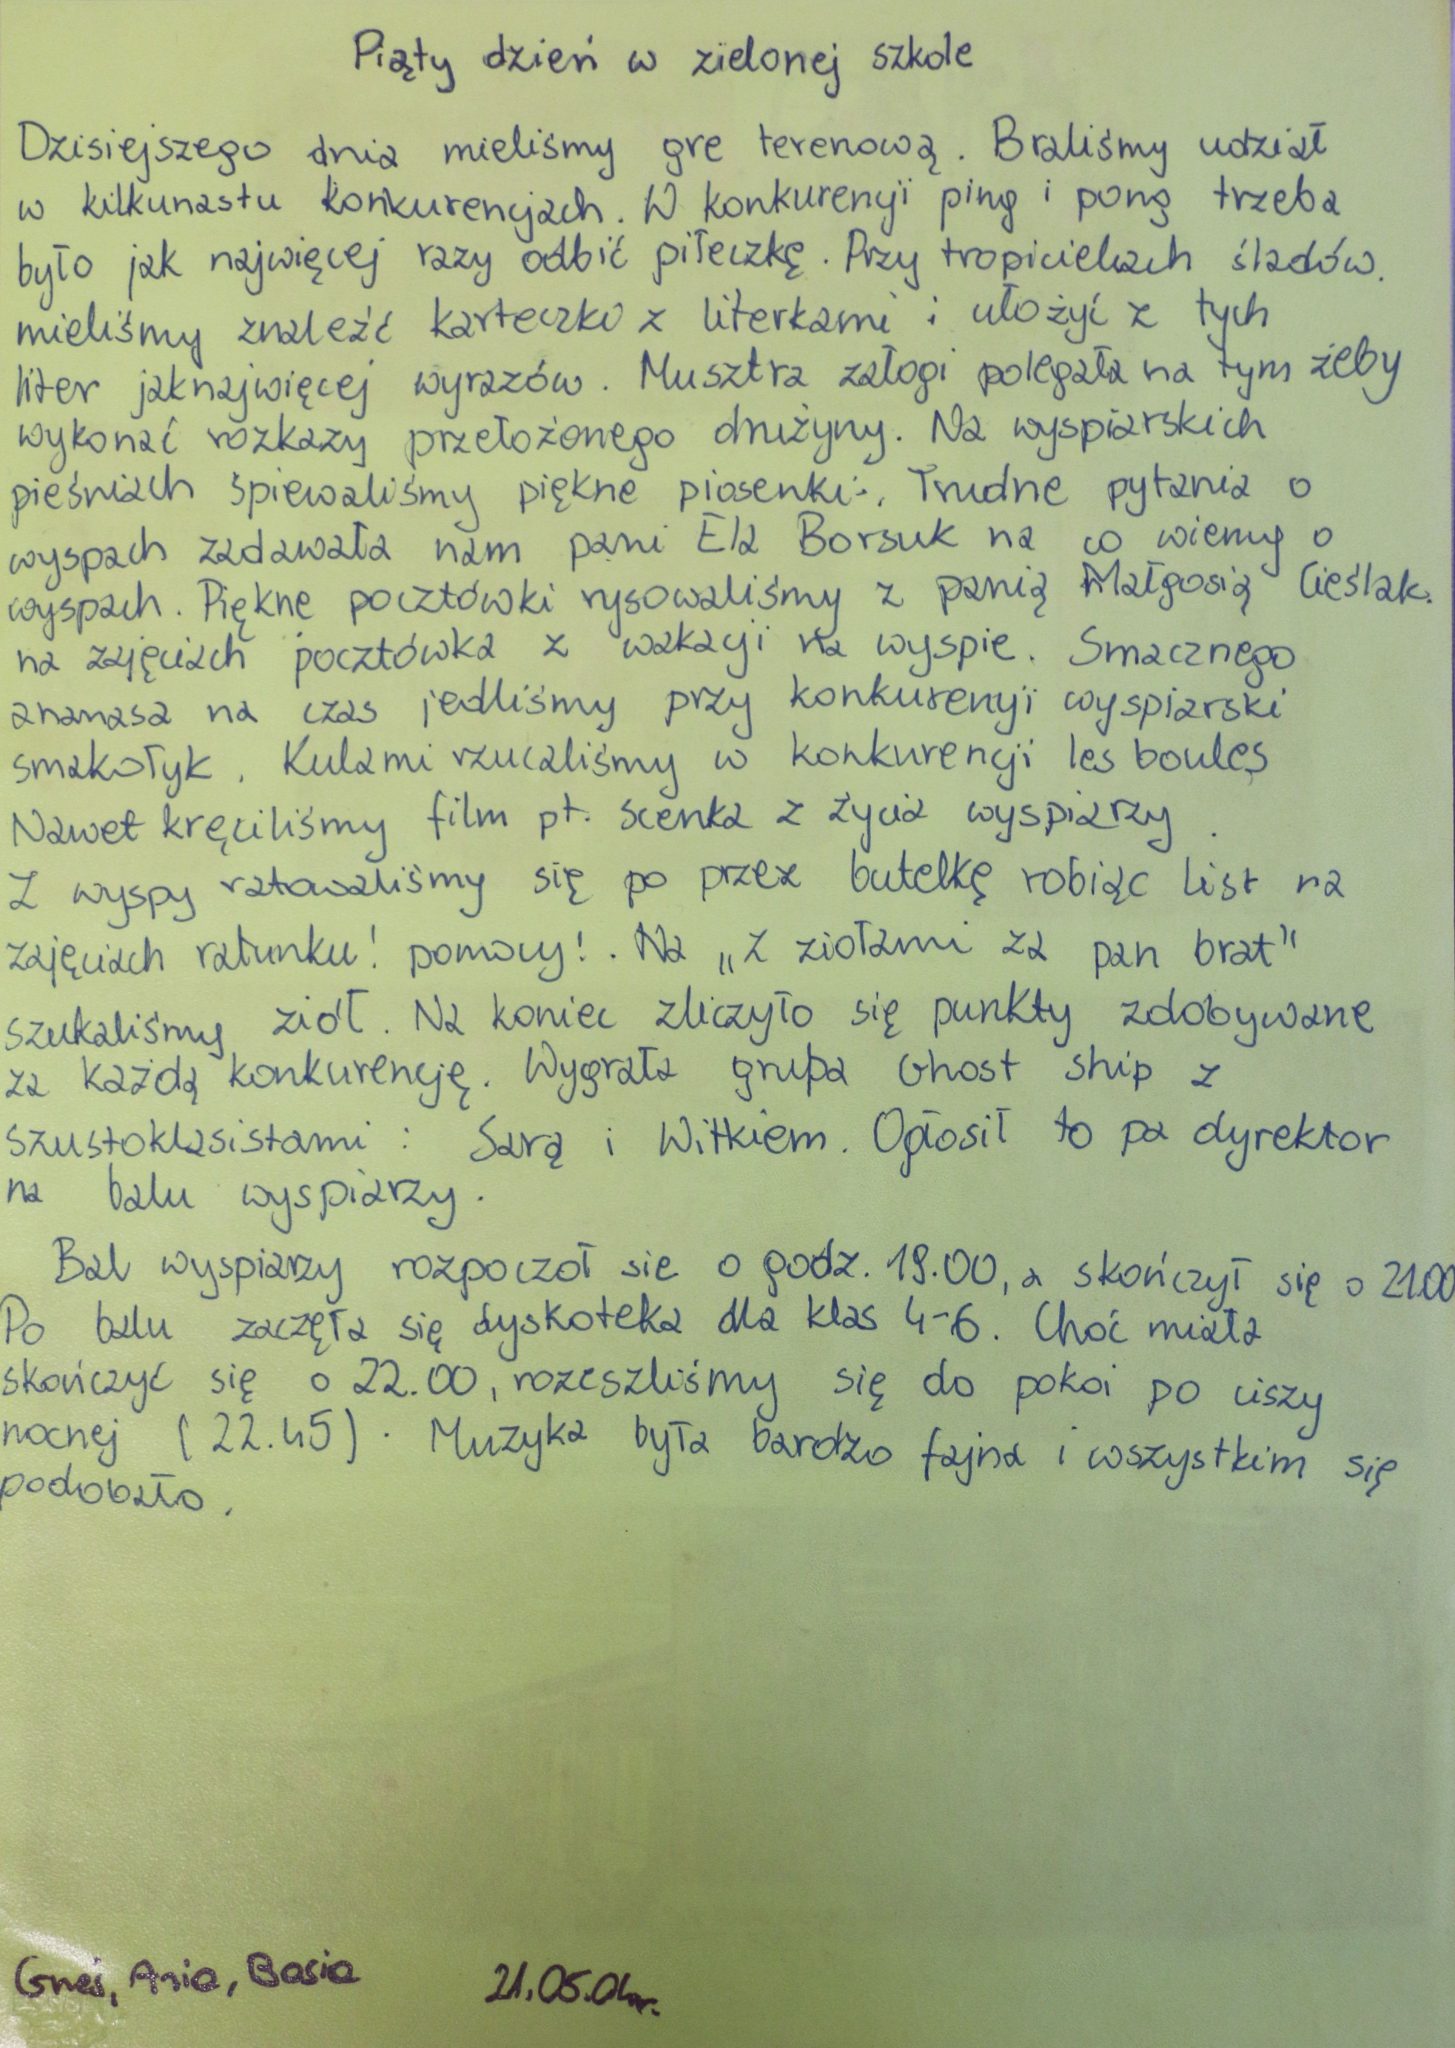 Piąty dzień w zielonej szkole
Dzisiejszego dnia mieliśmy gre terenową. Braliśmy udział
w kilkunastu konkurencjach. W konkurencji ping i pong trzeba
było jak najwięcej razy odbić piłeczkę. Przy tropicielach śladów.
mieliśmy znaleźć karteczki z literkami i ułożyć z tych
liter jaknajwięcej wyrazów. Musztra załogi polegała na tym żeby
wykonać rozkazy przełożonego drużyny. Na wyspiarskich
pieśniach śpiewaliśmy piękne piosenki. Trudne pytania o
wyspach zadawała nam pani Ela Borsuk na co wiemy o
wyspach. Piękne pocztówki rysowaliśmy z panią Małgosią Cieślak.
na zajęciach pocztówka z wakacji na wyspie. Smacznego
ananasa na czas jedliśmy przy konkurencji wyspiarski
smakołyk. Kulami rzucaliśmy w konkurencji les boules
Nawet kręciliśmy film pt. scenka z życia wyspiarzy.
Z wyspy ratowaliśmy się po przez butelkę robiąc list na
zajęciach ratunku! pomocy!. Na „z ziołami za pan brat"
szukaliśmy ziół. Na koniec zliczyło się punkty zdobywane
za każdą konkurencję. Wygrała grupa Ghost ship z
szustoklasistami: Sarą i Witkiem. Ogłosił to pa dyrektor
na balu wyspiarzy.
Bal wyspiarzy rozpoczoł sie o godz. 19.00, a skończył się o 21.00
Po balu zaczęła się dyskoteka dla klas 4-6. Choć miała
skończyć się o 22.00, rozeszliśmy się do pokoi po ciszy
nocnej (22.45). Muzyka była bardzo fajna i wszystkim się
podobało.
Ania, Basia 21.05.